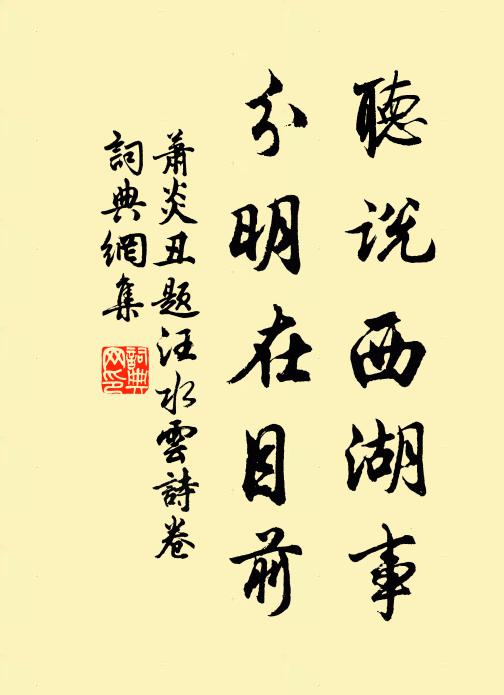 聽説西湖事
分明在目前
蕭炎丑題汪水雲詩卷
詞典網集
詞典
网印